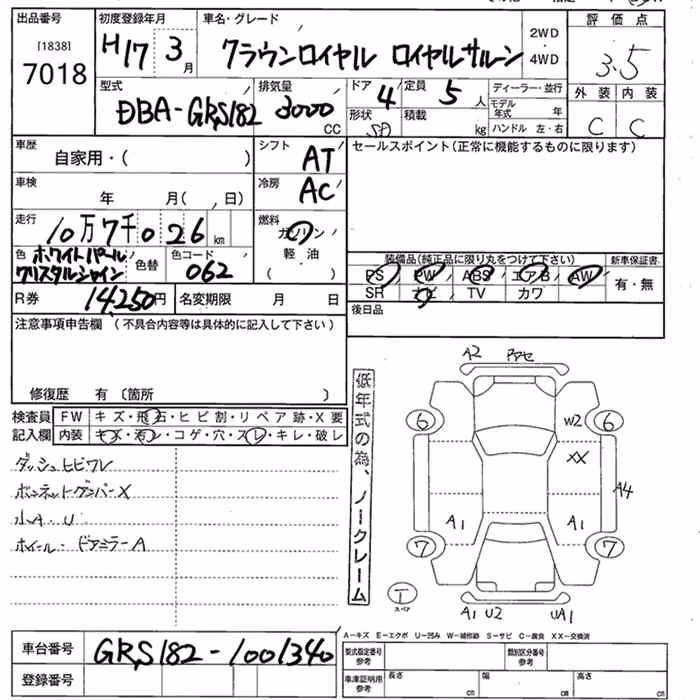 出品番号 初度登録年月 車名・グレード 2WD 評価点
[1838] H17 3月 クラウンロイヤル ロイヤルサルーン ・ 3.5
7018 4WD
型式 排気量 ドア 定員 ディーラー・並行 外装 内装
DBA-GRS182 3000 CC 4 5人 モデル年式 年 C C
形状 積載 kg ハンドル 左・右
車歴 シフト セールスポイント(正常に機能するものに限ります)
自家用・( ) AT
車検 冷房
年 月( 、日) AC
走行 燃料
10万7千026km ガソリン
色 ホワイトパール 色替 色コード 軽油 装備品(純正品に限り丸をつけて下さい) 新車保証書
クリスタルシャイン 062 ( ) PS PW ABS エアB AW 有・無
R券 14,250円 名変期限 月 日 SR ナビ TV カワ
注意事項申告欄 (不具合内容等は具体的に記入して下さい) 後日品
修復歴 有 〔箇所 〕
検査員 FW キズ・飛石・ヒビ割・リペア跡・X要
記入欄 内装 キズ・汚レ・コゲ・穴・スレ・キレ・破レ
ダッシュヒビワレ
ボンネットダンパーX
小A・U
ホイール・ドアミラーA
低年式の為、ノークレーム
A2 アアセ
6 W2 6
XX
A4
A1 A1
7 7
T
スペア
A1 U2 UA1
A-キズ E-エクボ U-凹み W-補修跡 S-サビ C-腐食 XX-交換済
車台番号 GRS182-1001340 型式指定番号 参考 類別区分番号 参考
登録番号 車庫証明用 参考 長さ cm 幅 cm 高さ cm